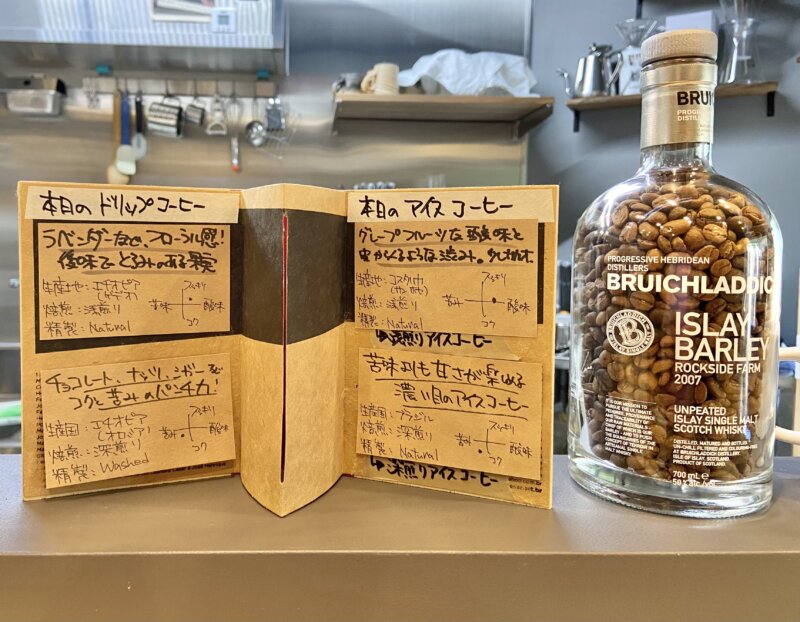 本日の ドリップコーヒー
ラベンダーなど、フローラル感!
後味で とろみのある果実
生産地:エチオピア
焙煎:浅煎り
精製:Natural
すっきり
苦味
酸味
コク
チョコレート、ナッツ、シガーなど
コクと苦みのパンチ力!
生産国:エチオピア
焙煎:深煎り
精製:Washed
すっきり
苦み
酸味
コク
本日の アイス コーヒー
グレープフルーツな酸味と
生産地:コスタリカ
焙煎:浅煎り
精製:Natural
すっきり
苦み
酸味
コク
浅煎りアイスコーヒー
苦味よりも甘さが楽しめる
濃い目のアイスコーヒー
生産国:ブラジル
焙煎:深煎り
精製:Natural
すっきり
苦み
酸味
コク
深煎りアイスコーヒー
PROGRESSIVE HEBRIDEAN
DISTILLERS
BRUICHLADDIC
ISLAY
BARLEY
ROCKSIDE FARM
2007
UNPEATED
ISLAY SINGLE MALT
SCOTCH WHISKY
DISTILLED, MATURED AND BOTTLED
UN-CHILL FILTERED AND COLOURING-FREE
AT BRUICHLADDICH DISTILLERY,
ISLE OF ISLAY, SCOTLAND.
PRODUCT OF SCOTLAND.
700 ml e